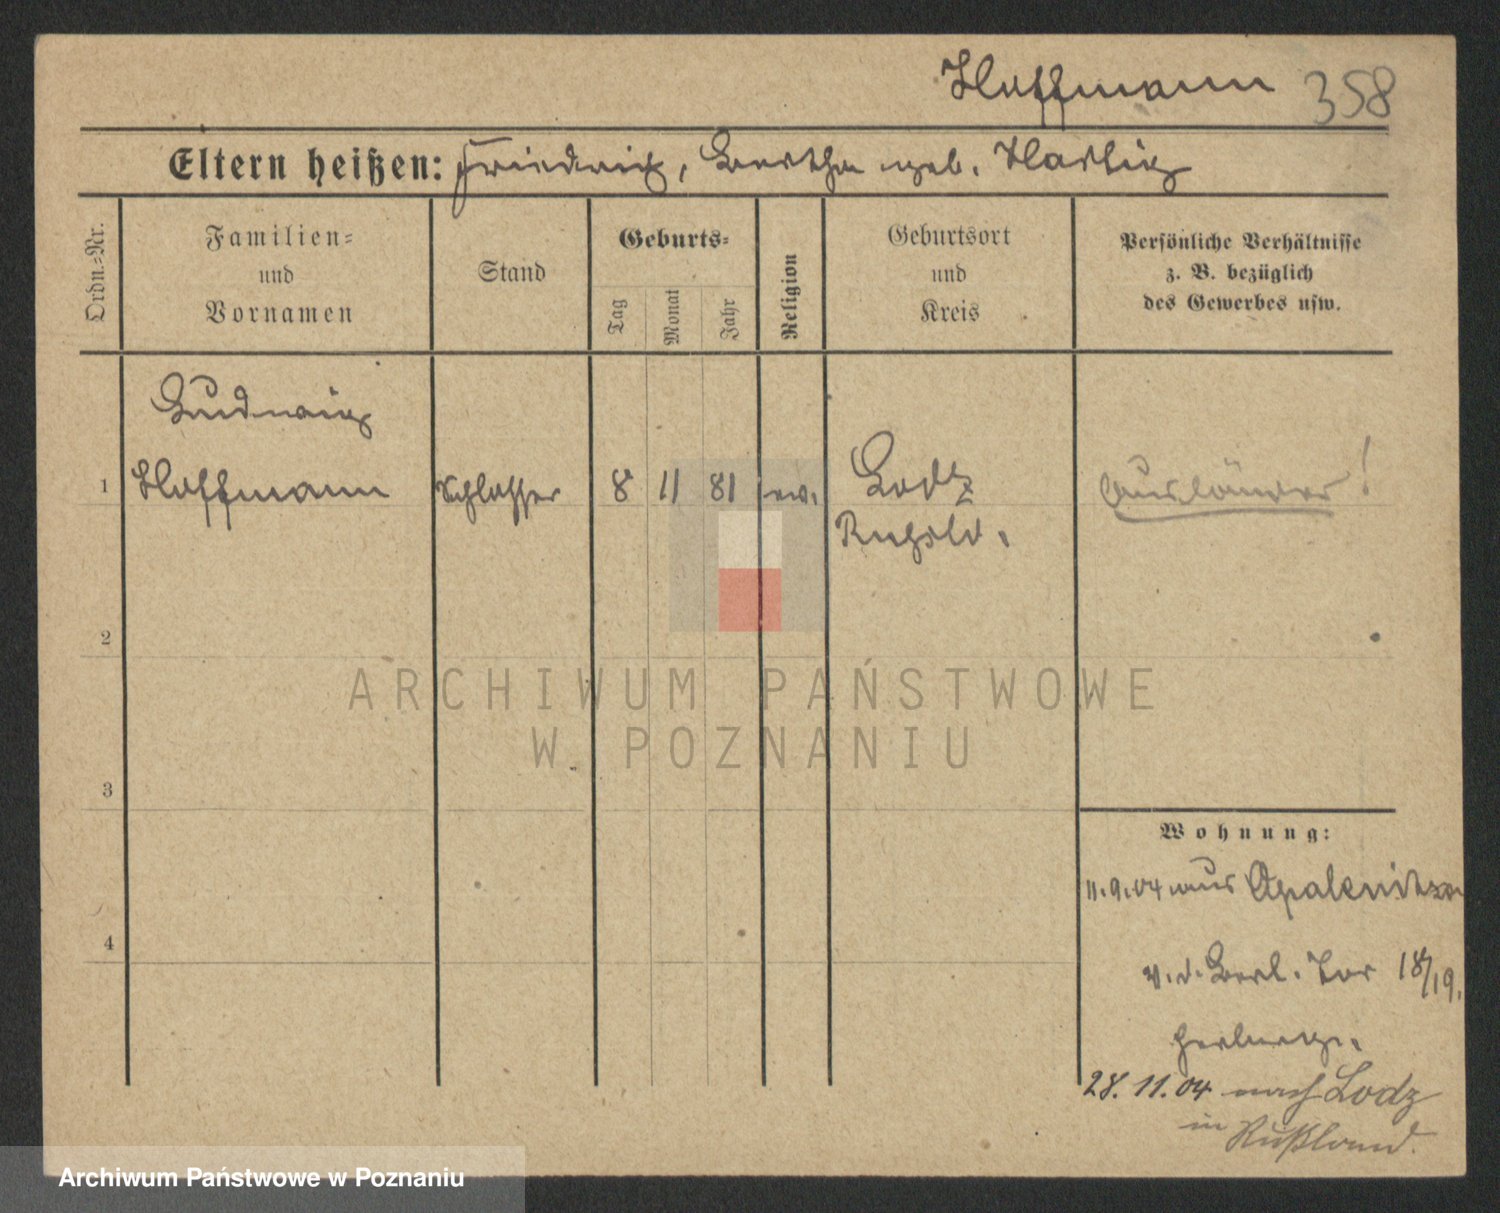 Hoffmann 358
Eltern heißen: Friedrich, Bertha geb. Hartig
Ordn.-Nr.
Familien-
und
Vornamen
Stand
Geburts-
Tag
Monat
Jahr
Religion
Geburtsort
und
Kreis
Persönliche Verhältnisse
z. B. bezüglich
des Gewerbes usw.
Ludwig
1 Hoffmann Schlosser 8 11 81 ev. Lodz Ausländer!
Rußld.
2
3
4
Wohnung:
11.9.04 aus Opalenitza
v. d. Berl. Tor 18/19.
Herberge.
28. 11. 04 nach Lodz
in Rußland.
ARCHIWUM PAŃSTWOWE
W POZNANIU
Archiwum Państwowe w Poznaniu